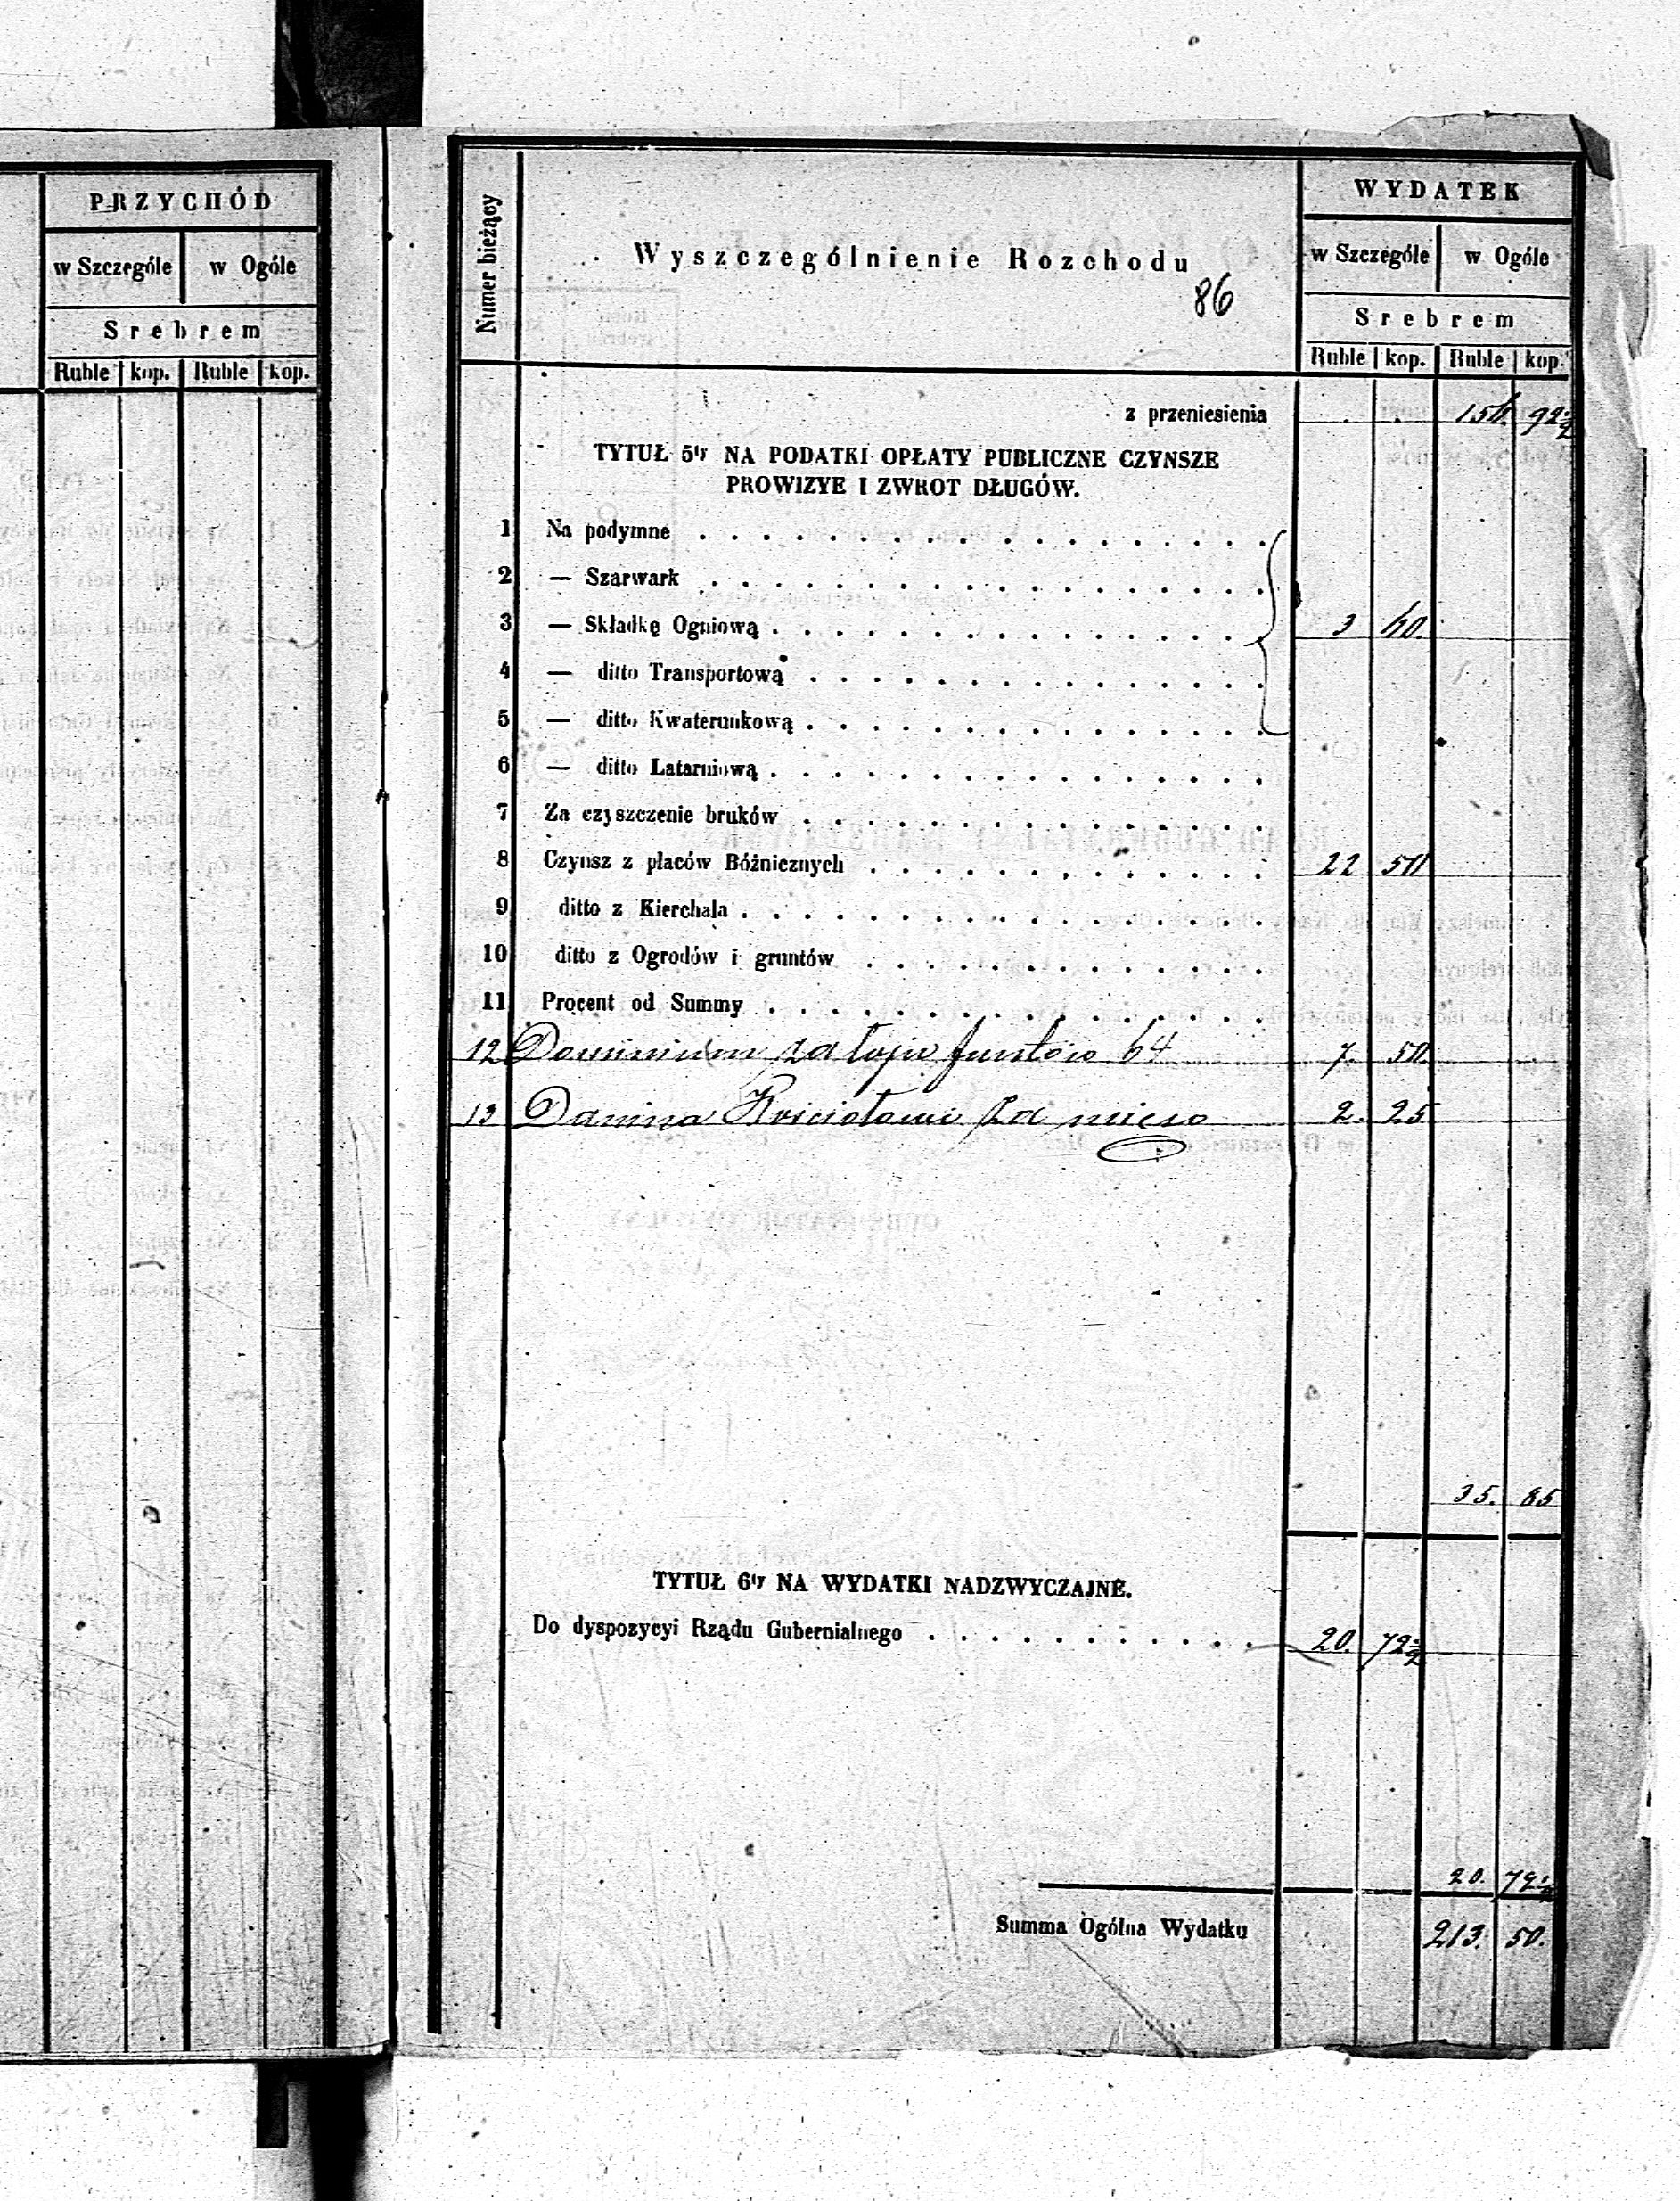 PRZYCHÓD
w Szczególe w Ogóle
Srebrem
Ruble kop. Ruble kop.
Numer bieżący
Wyszczególnienie Rozchodu
86
WYDATEK
w Szczególe w Ogóle
Srebrem
Ruble kop. Ruble kop.
z przeniesienia 156. 92½
TYTUŁ 5ty NA PODATKI OPŁATY PUBLICZNE CZYNSZE
PROWIZYE I ZWROT DŁUGÓW.
1 Na podymne
2 — Szarwark
3 — Składkę Ogniową 3 60.
4 — ditto Transportową
5 — ditto Kwaterunkową
6 — ditto Latarniową
7 Za czyszczenie bruków
8 Czynsz z placów Bóżnicznych 22 50
9 ditto z Kierchala
10 ditto z Ogrodów i gruntów
11 Procent od Summy
12 Dominium za łoju funtów 64 7. 50.
13 Danina Kościołowi za mięso 2. 25
35. 85
TYTUŁ 6ty NA WYDATKI NADZWYCZAJNE.
Do dyspozycyi Rządu Gubernialnego 20. 72½
20. 72½
Summa Ogólna Wydatku 213. 50.